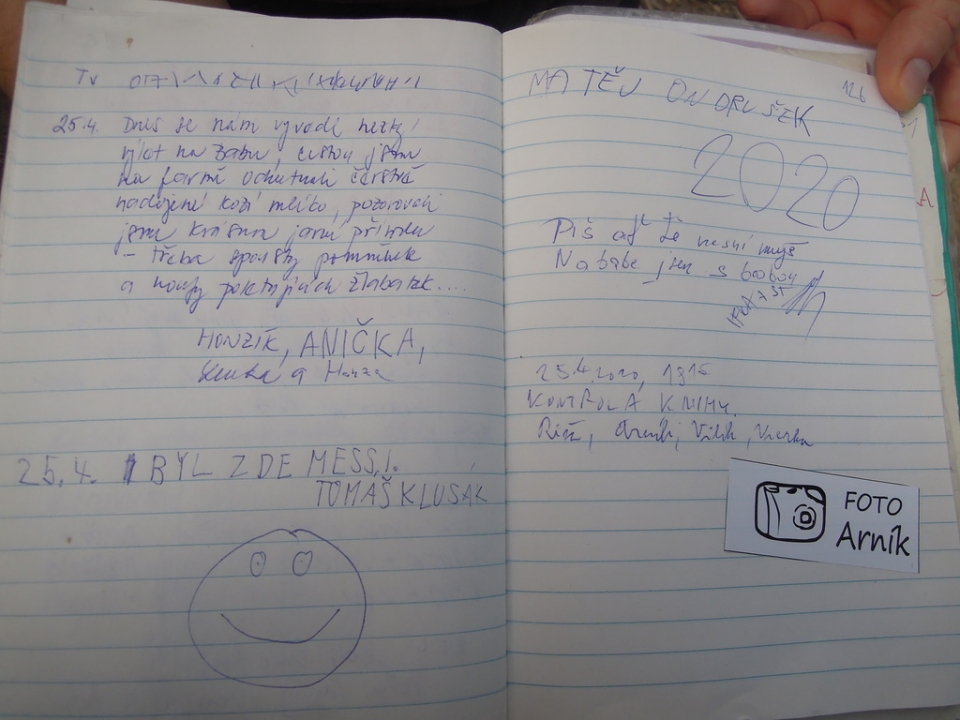 25.4. Dnes se nám vyvedl hezký
výlet na Babu, cestou jsme
na farmě ochutnali čerstvě
nadojené kozí mléko, pozorovali
jsme krásnou jarní přírodu
- třeba spousty pomněnek
a houfy poletujících žlabatek....
HONZÍK, ANIČKA,
Lenka a Honza
25.4. BYL ZDE MESSI.
TOMÁŠ KLUSÁK
126
MATĚJ ONDRUŠEK
2020
Piš ať tě nesní myš
Na babě jsem s bábou
25.4.2020, 1915
KONTROLA KNIHY.
Vilík, Vierka
FOTO
Arník